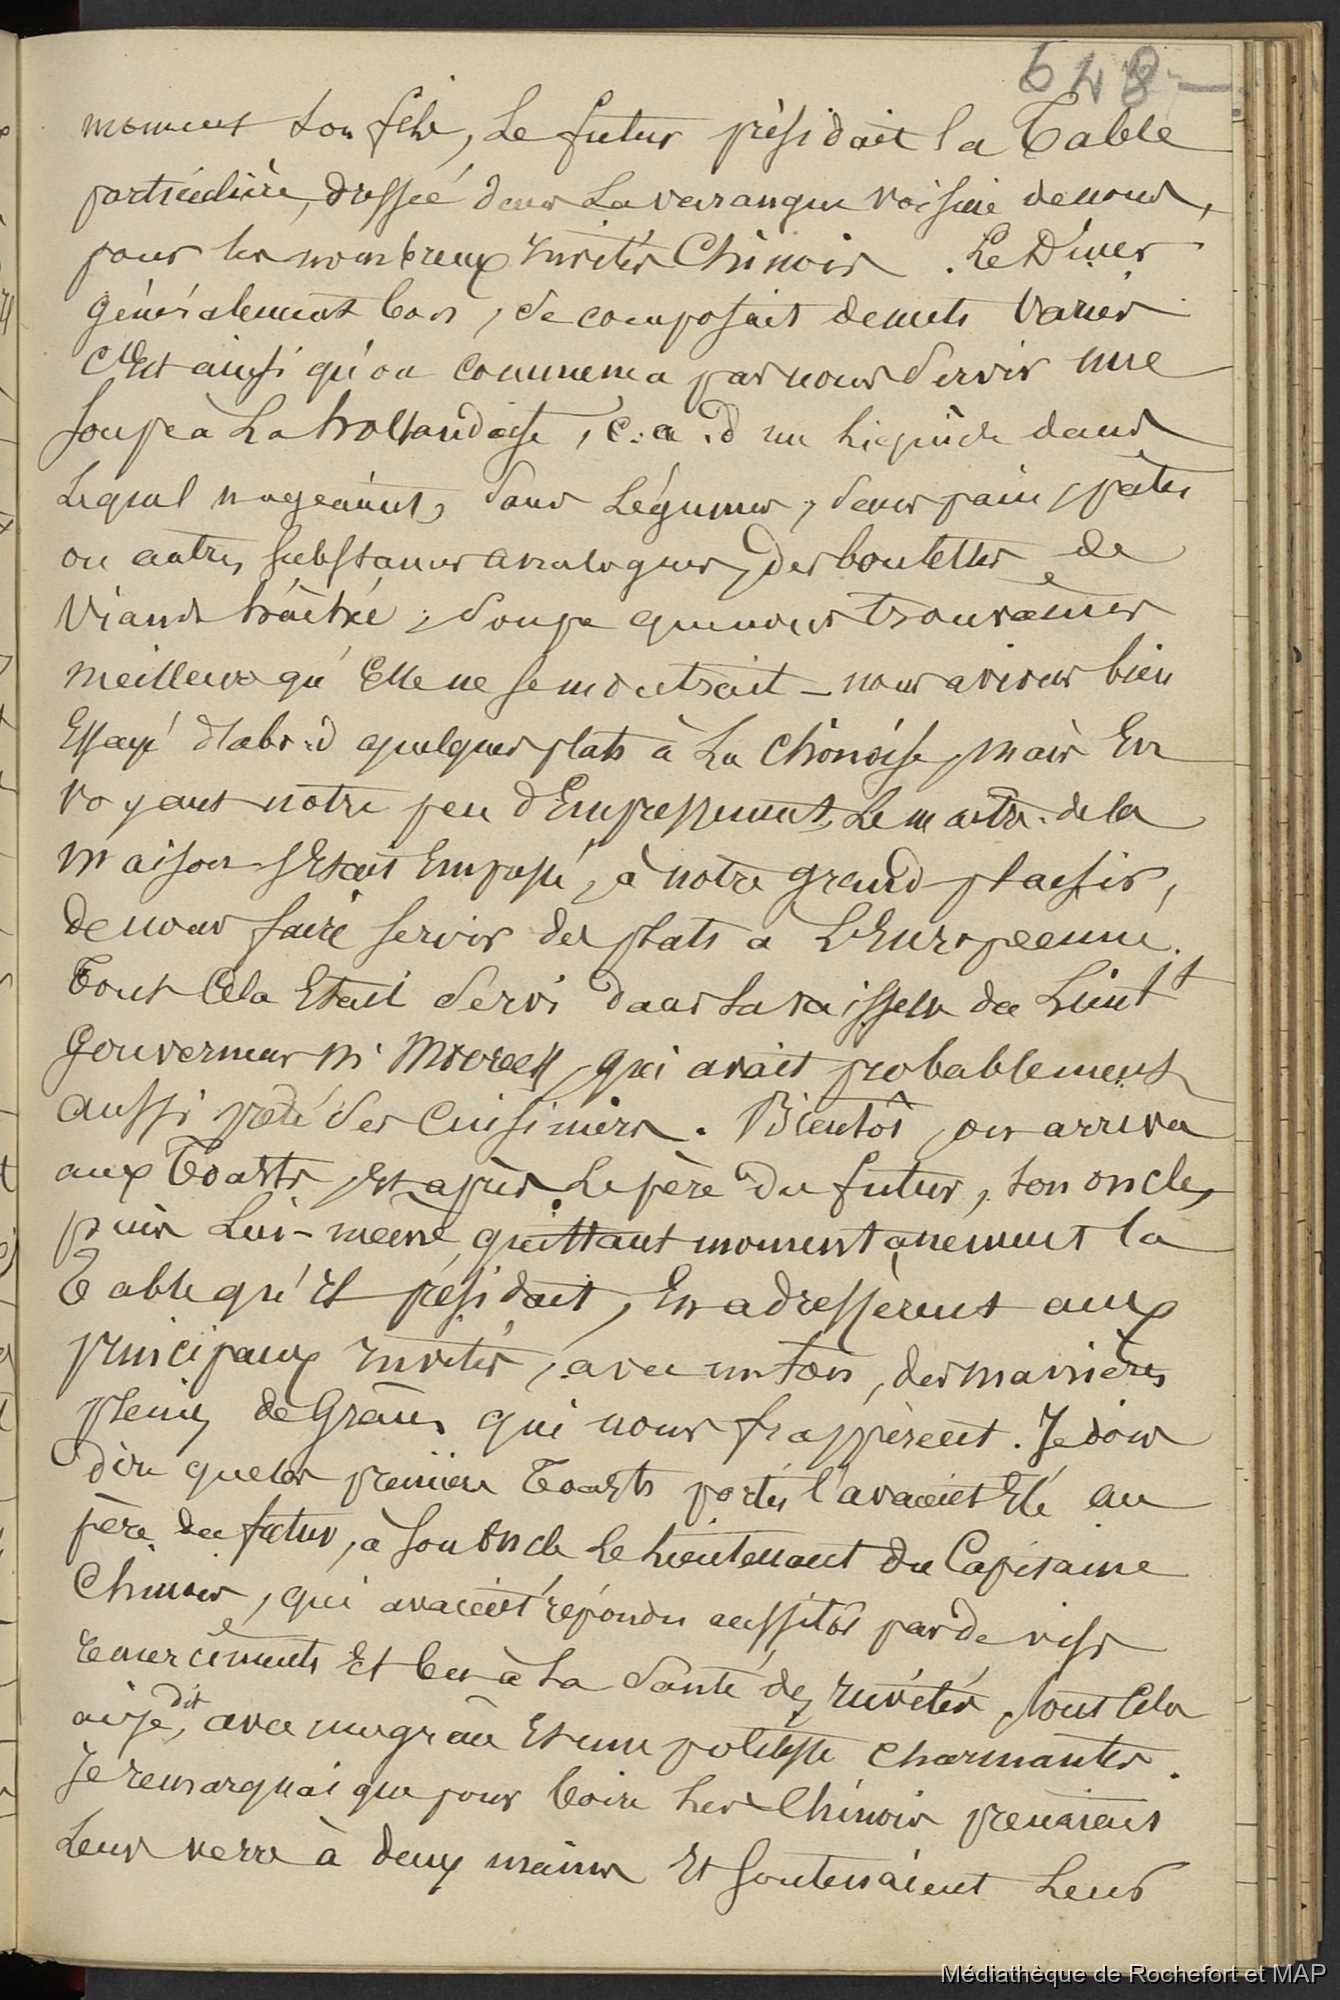 648
moment son fils, Le futur présidait la Table
particulière, dressée dans La varangue voisine de nous,
pour les nombreux Invités Chinois. Le Dîner
généralement bon, se composait de mets variés
C'Est ainsi qu'on commença par nous servir une
soupe à La hollandaise, c. a. d un Liquide dans
Lequel nageaient, sans Légumes, sans pain, pâtes
ou autres substances analogues, des boulettes de
viande hâchée, soupe que nous trouvâmes
meilleure qu'Elle ne se montrait – nous avions bien
Essayé d'abord quelques plats à La Chinoise, mais En
voyant notre peu d'Empressement, Le maître de la
maison s'Etait Empressé, à notre grand plaisir,
de nous faire servir des plats a L'Européenne.
Tout Cela Etait servi dans La vaisselle du Lieutt
gouverneur Mr , qui avait probablement
aussi prêté ses Cuisiniers. Bientôt, on arriva
aux Toasts, Et après Le père du futur, son oncle,
puis Lui-même, quittant momentanement la
Table qu'Il présidait, En adressèrent aux
principaux Invités, avec un ton, des manières
pleines de Grâces qui nous frappèrent. Je dois
dire que les premiers Toasts portés l'avaient Eté au
père du futur, à son oncle Le Lieutenant du Capitaine
Chinois, qui avaient répondu aussitôt par de vifs
remerciements Et bu à La Santé des Invités, tout Cela
ai-je dit, avec une grâce Et une politesse charmantes.
Je remarquai que pour boire Les Chinois prenaient
Leur verre à deux mains Et soutenaient Leur
Médiathèque de Rochefort et MAP